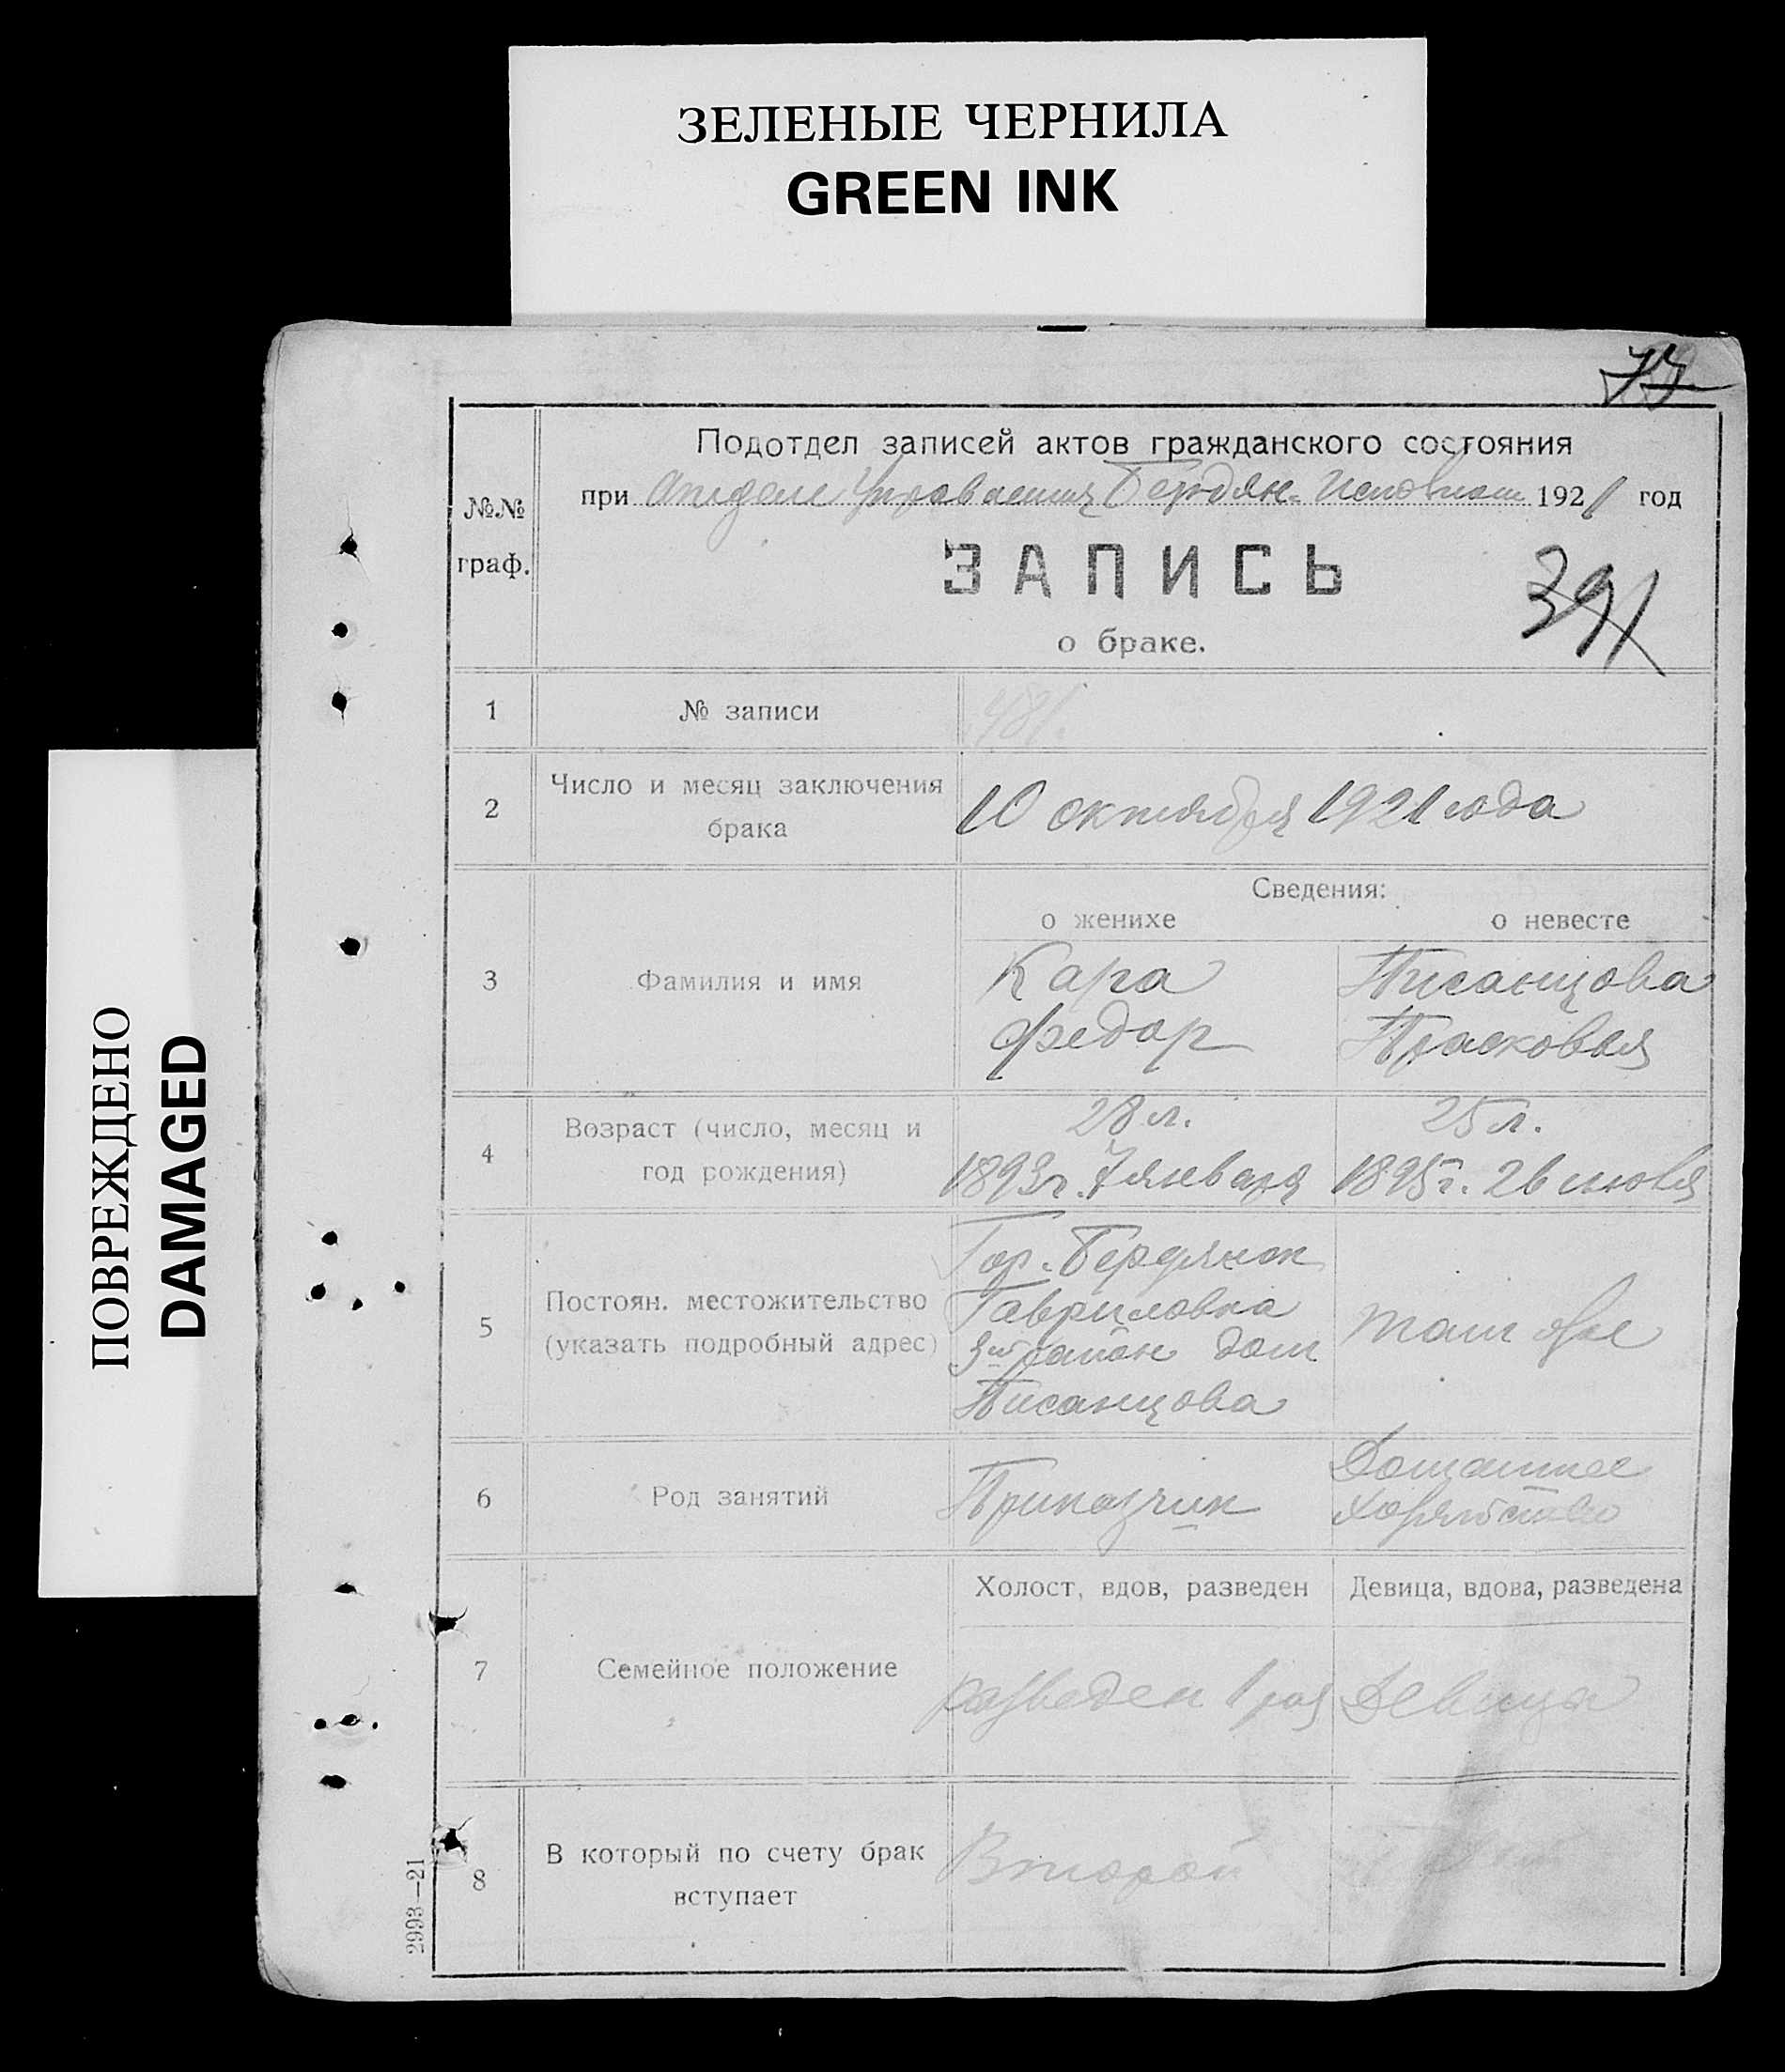 ЗЕЛЕНЫЕ ЧЕРНИЛА
GREEN INK
ПОВРЕЖДЕНО
DAMAGED
77
№№ граф.
Подотдел записей актов гражданского состояния
при Отделе Управления Бердян. Исполком 1921 год
ЗАПИСЬ
391
о браке.
1 № записи 481.
2 Число и месяц заключения брака 10 октября 1921 года
Сведения:
о женихе о невесте
3 Фамилия и имя
Кара Писанцова
Федор Прасковья
4 Возраст (число, месяц и год рождения)
28 л. 25 л.
1893г. 7 января 1895г. 26 июля
5 Постоян. местожительство (указать подробный адрес)
Гор. Бердянск
Гавриловка
3й район дом
Писанцова
там же
6 Род занятий
Приказчик
Домашнее
хозяйство
7 Семейное положение
Холост, вдов, разведен Девица, вдова, разведена
разведен 1 раз Девица
8 В который по счету брак вступает
Второй
2993—21